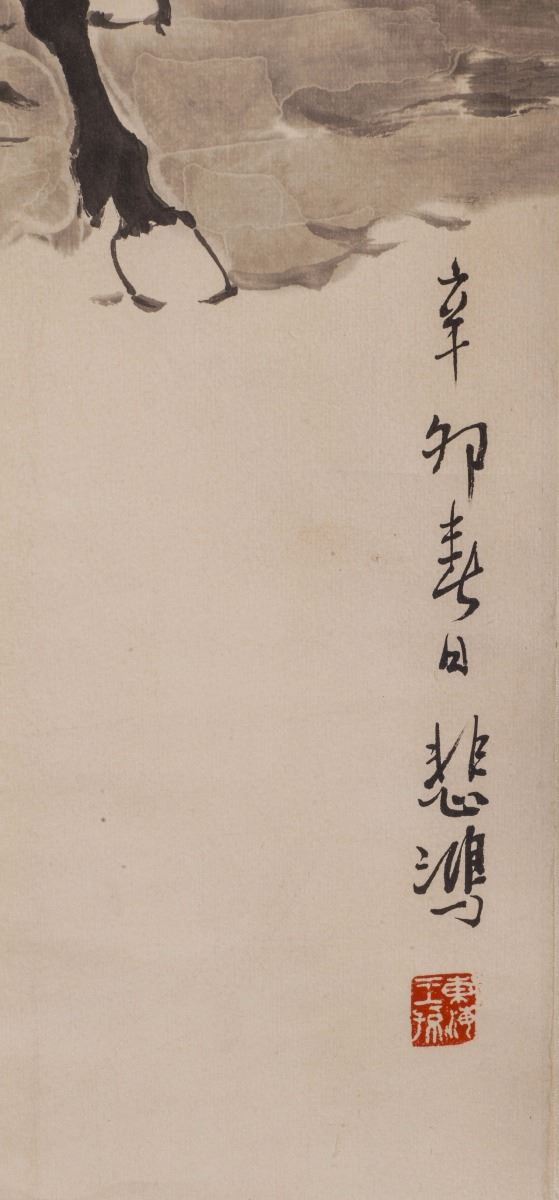 辛卯春日悲鴻
東海王孫